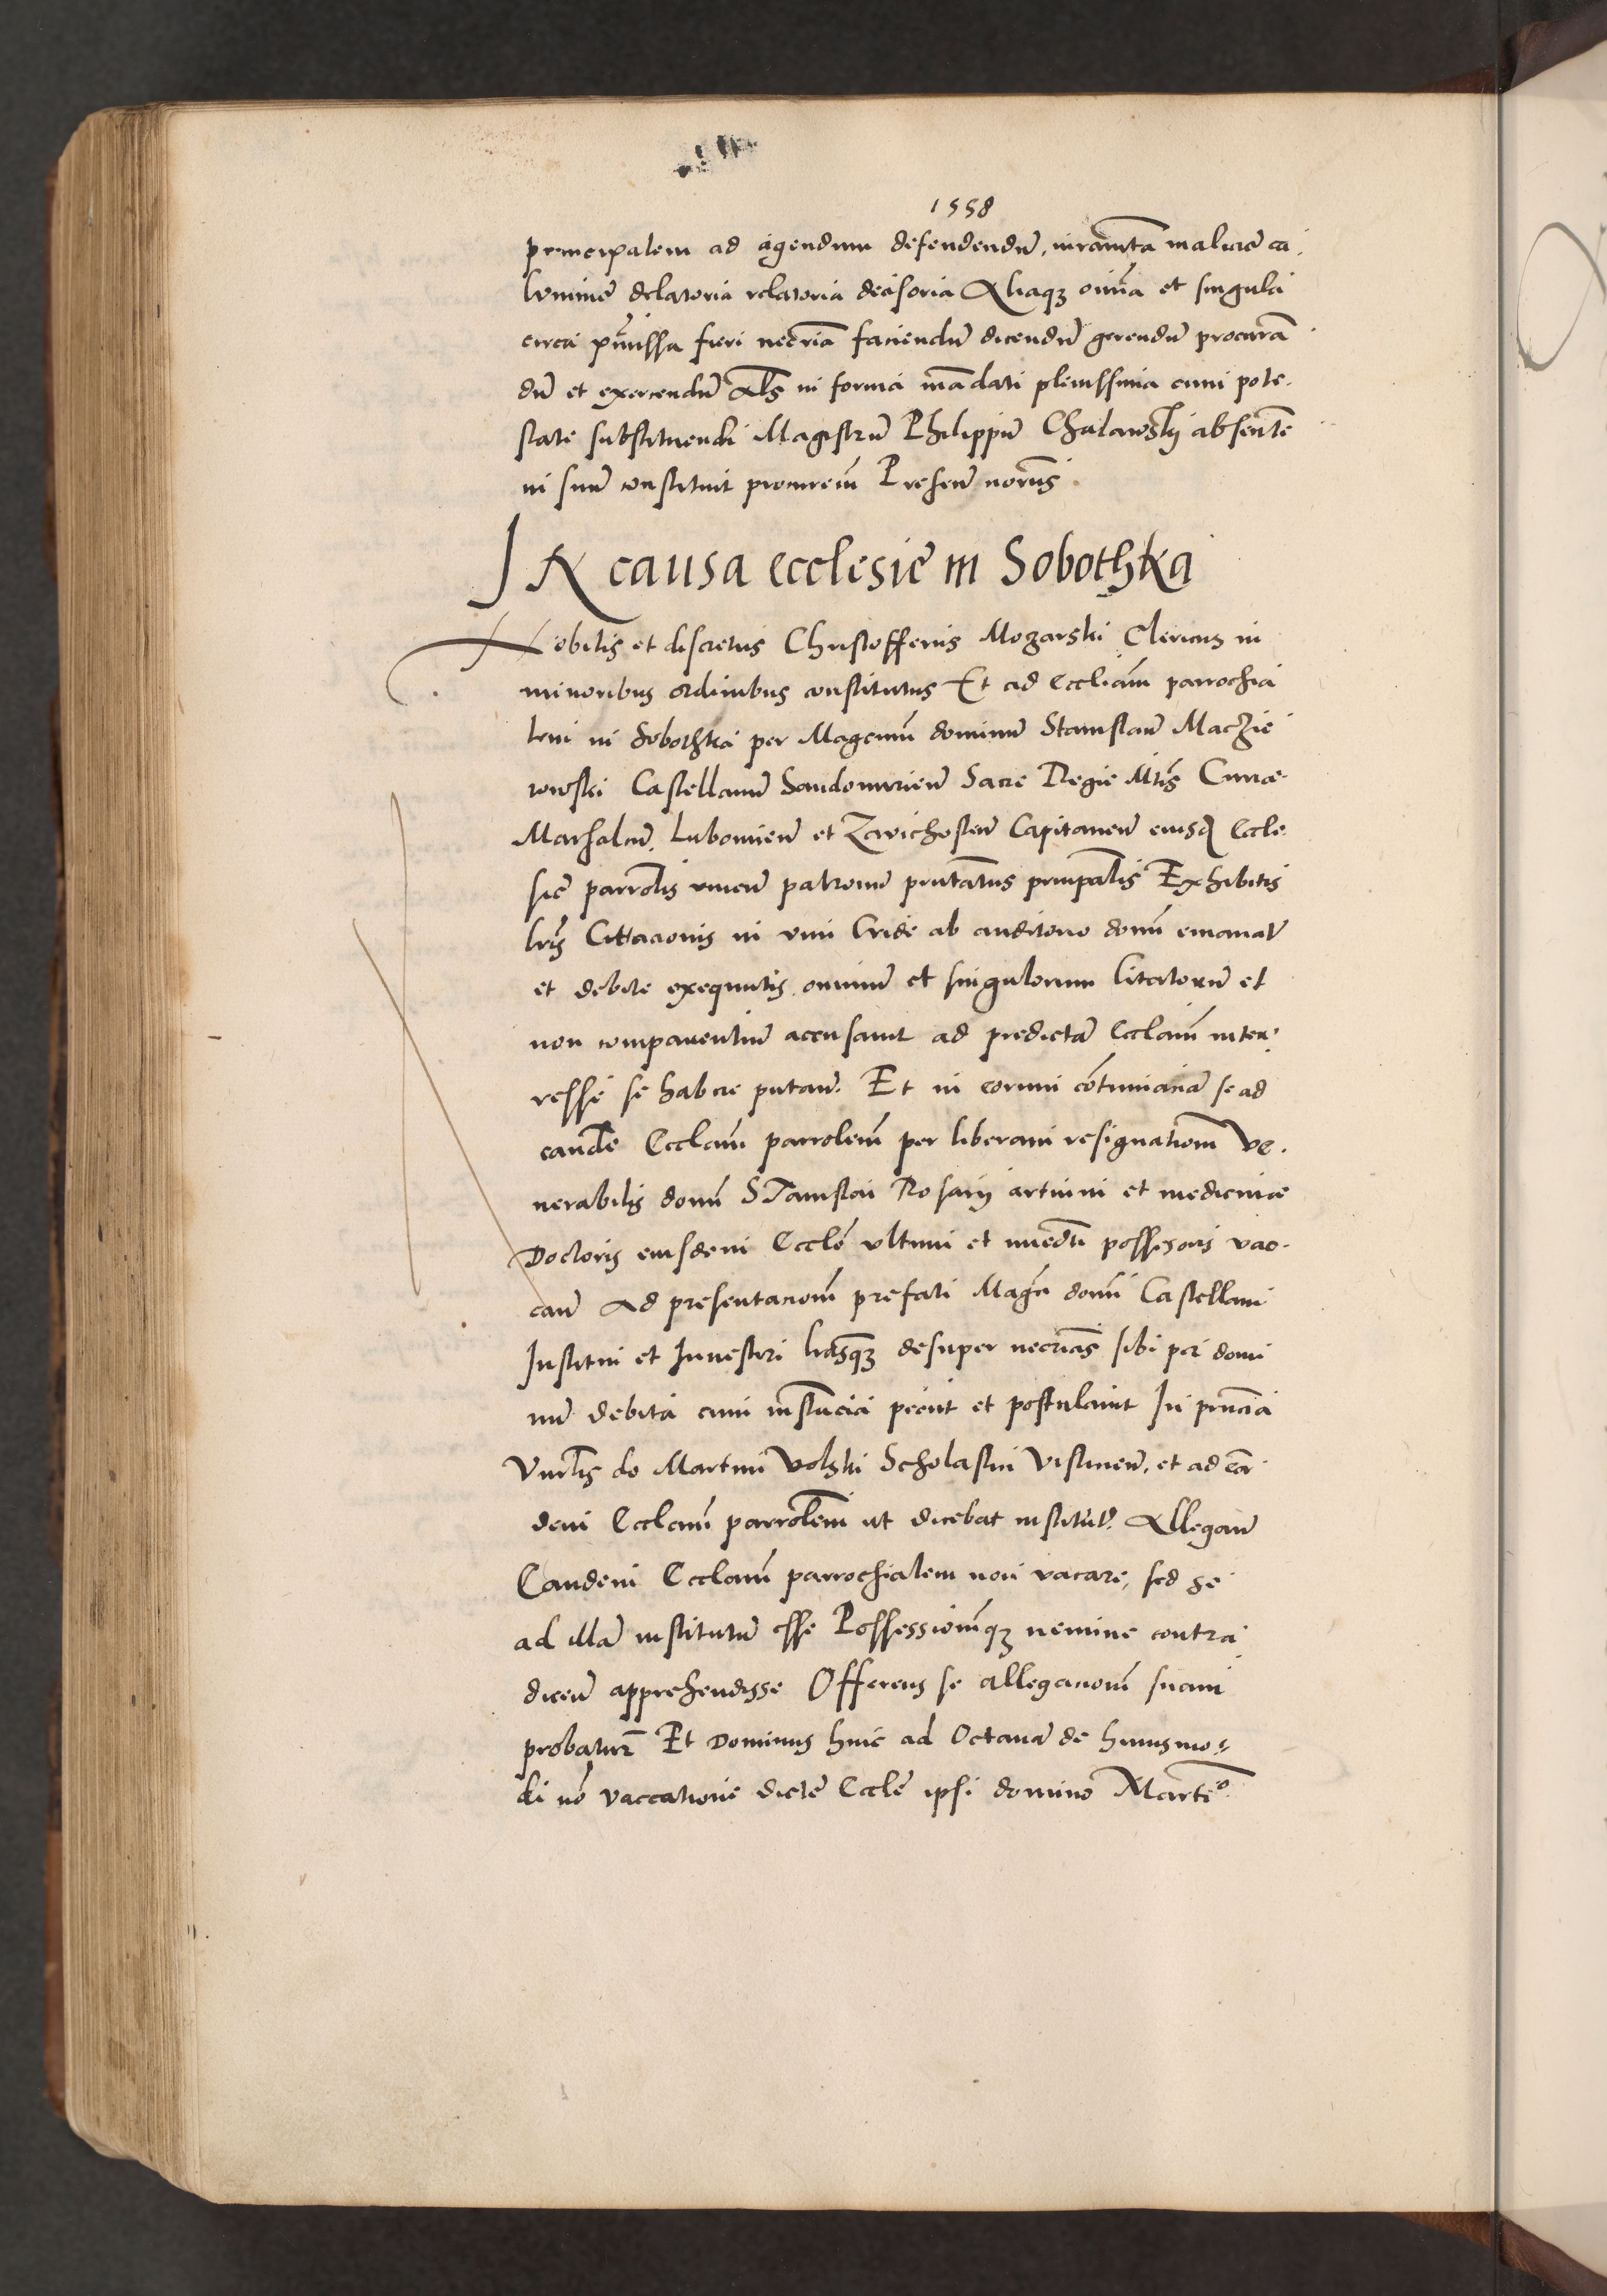 1558
principalem ad agendum defendendū, iuramt̄a malicie ca
lumnie delatoria relatoria decisoria Aliaqȝ oīna et singula
circa p̄missa fieri necr̄ia faciendū dicendū gerendū procurā
dū et exercendū Als in forma mādati plenissima cum pote
state substituendi Magistrū Philippū Chalawskij absentē
in suū constituit procurem̄ Presen̄ nor̄us
IN causa ecclesie in Sobothka
Nobilis et discretus Christofferus Mozarski Clericus in
minoribus ordinibus constitutus Et ad eccliam̄ parrochia
lem in Sobothka per Magcum̄ dominū Stanislaū Maczie
iowski Castellanū Sandomirien̄ Sacre Regie Mt̄is Curiæ
Marsalcū, Lubomien̄ et Zawichosten̄ Capitaneū eiusd̄ Eccle
sie parrol̄is unicū patronū pn̄tatus principalis Exhibitis
lr̄is Cittacionis in vim Cride ab auditorio domī emanat̄
et debite exequutis, omniū et singulorum Citatorū et
non comparentiū accusavit ad predictā Ecclam̄ inter
resse se habere putan̄. Et in eorum cōtumaciā se ad
eandē Ecclam̄ parrolem̄ per liberam resignationem̄ Ve
nerabilis domī STanislai Rosarij artium et medicinæ
Doctoris eiusdem Ecclē ultimi et īmedti possesoris vac
can̄ Ad presentacionem̄ prefati Magc̄i domī Castellani
Institui et Investiri lr̄asqȝ desuper necr̄ias sibi per domi
nū debita cum instācia peciit et postulavit In pn̄cia
Vnrl̄is do Martini Volski Scholastici Vislicien̄, et ad eā
dem Ecclam̄ parrolem̄ ut dicebat institūt̄. Allegan̄
Eandem Ecclam̄ parrochialem non vacare, sed se
ad illā institutū esse Possessionem̄qȝ nemine contra
dicen̄ apprehendisse Offerens se allegacionem̄ suam
probatur̄ Et Dominus huic ad Octavā de huiusmo
di nō vaccatione dicte Ecclē ipsi domino Martīo